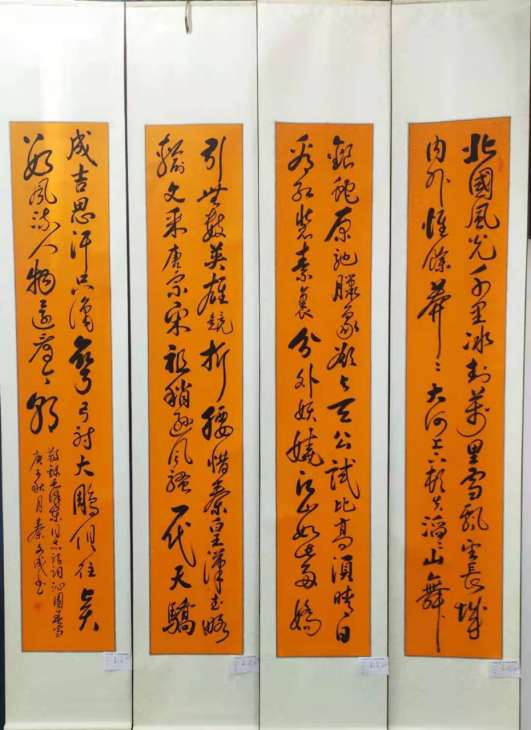 北國風光千里冰封萬里雪飄望長城
内外惟餘莽〻大河上下頓失滔〻山舞
銀蛇原馳臘象欲与天公試比高須晴日
看紅裝素裹分外妖嬈江山如此多嬌
引無數英雄競折腰惜秦皇漢武略
輸文采唐宗宋祖稍遜風騷一代天驕
成吉思汗只識彎弓射大鵰俱往矣
數風流人物還看今朝
敬錄毛澤東同志詩詞沁園春雪
庚子秋月秦文成書